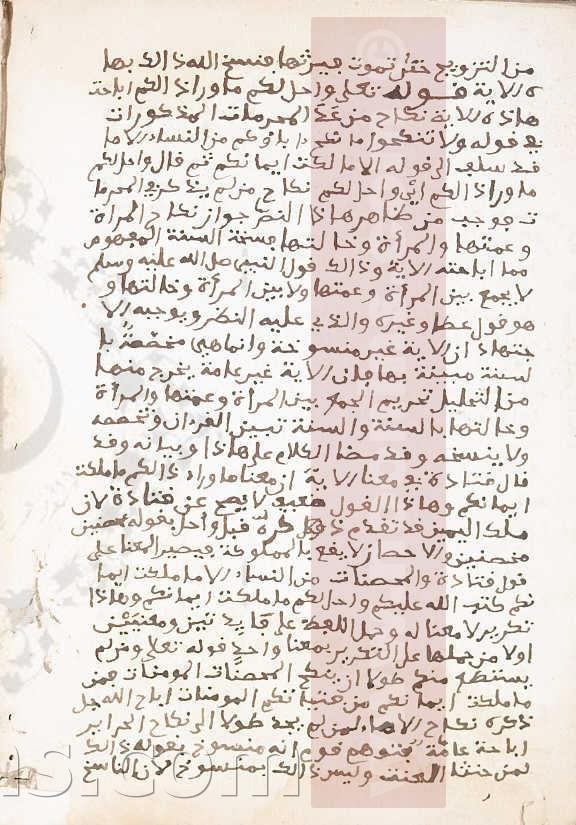 من التزويج حتى تموت فيرثها فنسخ الله ذالك بها
ذه الاية قوله تعلى واحل لكم ما وراء ذالكم اباحت
هاذه الاية نكاح من عدا المحرمات المذكورات
في قوله ولا تنكحوا ما نكح اباؤكم من النساء الا ما
قد سلف الى قوله الا ما ملكت ايمانكم ثم قال واحل لكم
ما وراء ذالكم اي واحل لكم نكاح من لم يذكر في المحرما
ت فوجب من ظاهر هاذا النص جواز نكاح المراة
وعمتها والمرأة وخالتها فنسخت السنة المفهوم
مما اباحته الاية وذالك قول النبي صلى الله عليه وسلم
لا يجمع بين المرأة وعمتها ولا بين المرأة وخالتها و
هو قول عطا وغيره والذي عليه النظر ويوجبه الا
جتهاد ان الاية غير منسوخة وانما هي مخصصة با
لسنة مبينة بها فان الاية غير عامة يخرج منها
من التحليل تحريم الجمع بين المرأة وعمتها والمرأة
وخالتها بالسنة والسنة تبين القرءان وتخصصه
ولا ينسخه وقد مضا الكلام على هاذا وبيانه وقد
قال قتادة في معنا الاية ان معنا ما وراء ذالكم ما ملكت
ايمانكم وهاذا القول ضعيف لا يصح عن قتادة لان
ملك اليمين قد تقدم ذكره قبل واحل بقوله محصنين
محصنين والاحصان لا يقع بالمملوكة فيصير المعنا على
قول قتادة والمحصنات من النساء الا ما ملكت ايما
نكم كتب الله عليكم واحل لكم ما ملكت ايمانكم وهاذا
تكرير لا معنا له وحمل اللفظ على
اولا من حملها على التكرير بمعنا واحد قوله تعلى ومن لم
يستطع منكم طولا ان ينكح المحصنات المومنات فمن
ما ملكت ايمانكم من فتياتكم المومنات اباح الله جل
ذكره نكاح الاماء لمن لم يجد طولا الى نكاح الحراير
اباحة عامة فتوهم قوم انه منسوخ بقوله ذالك
لمن خشى العنت وليس ذالك بمنسوخ لان الناسخ